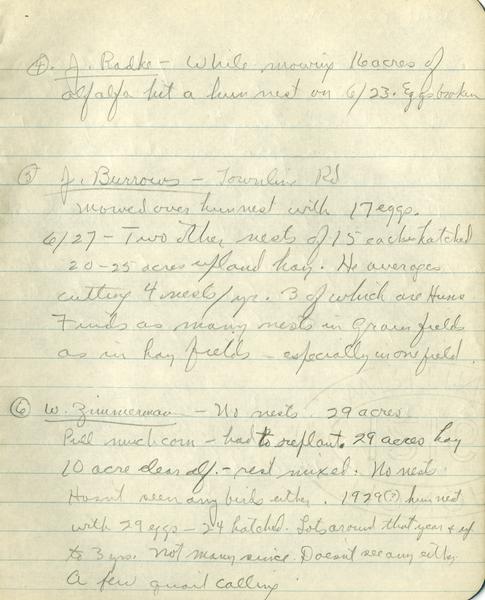 ④. J. Radke - While mowing 16 acres of
alfalfa hit a hun nest on 6/23. Eggs broken
⑤ J. Burrows - Townline Rd
mowed over hun nest with 17 eggs.
6/27 - Two other nests of 15 each hatched
20-25 acres upland hay. He averages
cutting 4 nests/yr. 3 of which are Huns
Finds as many nests in grain fields
as in hay fields - especially in one field.
⑥ W. Zimmerman - No nests. 29 acres
Pull much corn - had to replant. 29 acres hay
10 acre clear alf. - rest mixed. No nests
Hasn't seen any birds either. 1929(?) hun nest
with 29 eggs - 24 hatched. Lots around that year & up
to 3 yrs. Not many since. Doesn't see any either
A few quail calling.